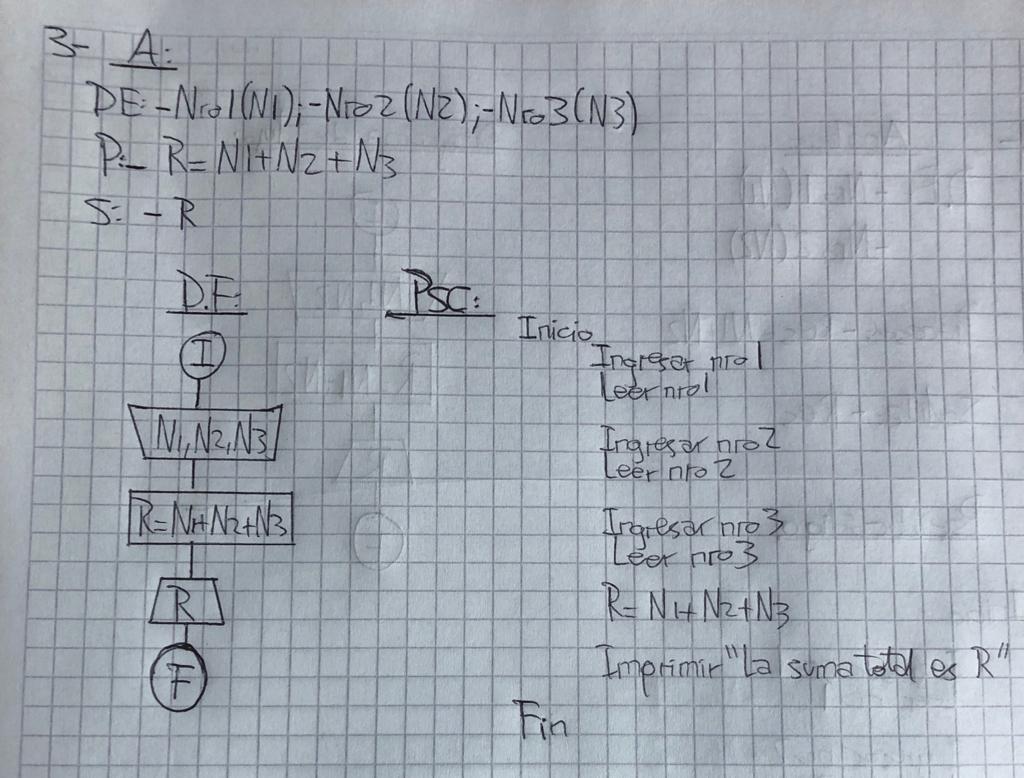 3- A:
DE: -Nro1(N1); -Nro2(N2); -Nro3(N3)
P:- R=N1+N2+N3
S: - R
D.F:
I
N1,N2,N3
R=N1+N2+N3
R
F
PSC:
Inicio
Ingresar nro1
Leer nro1
Ingresar nro2
Leer nro2
Ingresar nro3
Leer nro3
R= N1+N2+N3
Imprimir "La suma total es R"
Fin